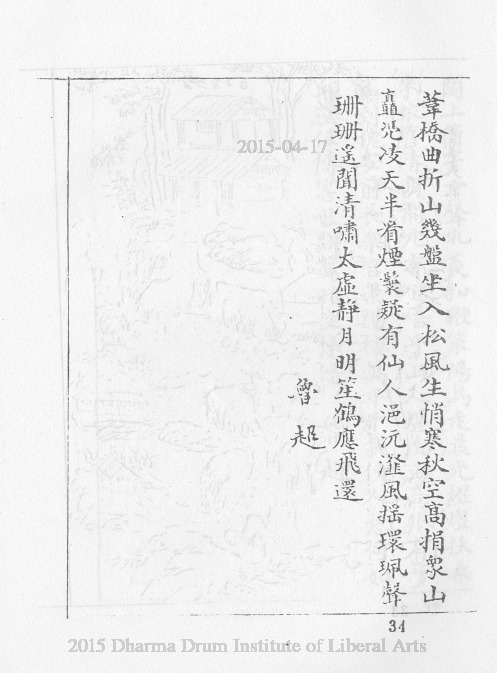 葦橋曲折山幾盤坐入松風生悄寒秋空高捐衆山
矗
凌天半
煙鬟疑有仙人浥沆瀣風搖環珮聲
珊珊遙聞清嘯太虛靜月明笙鶴應飛還
魯超
34
2015-04-17
2015 Dharma Drum Institute of Liberal Arts